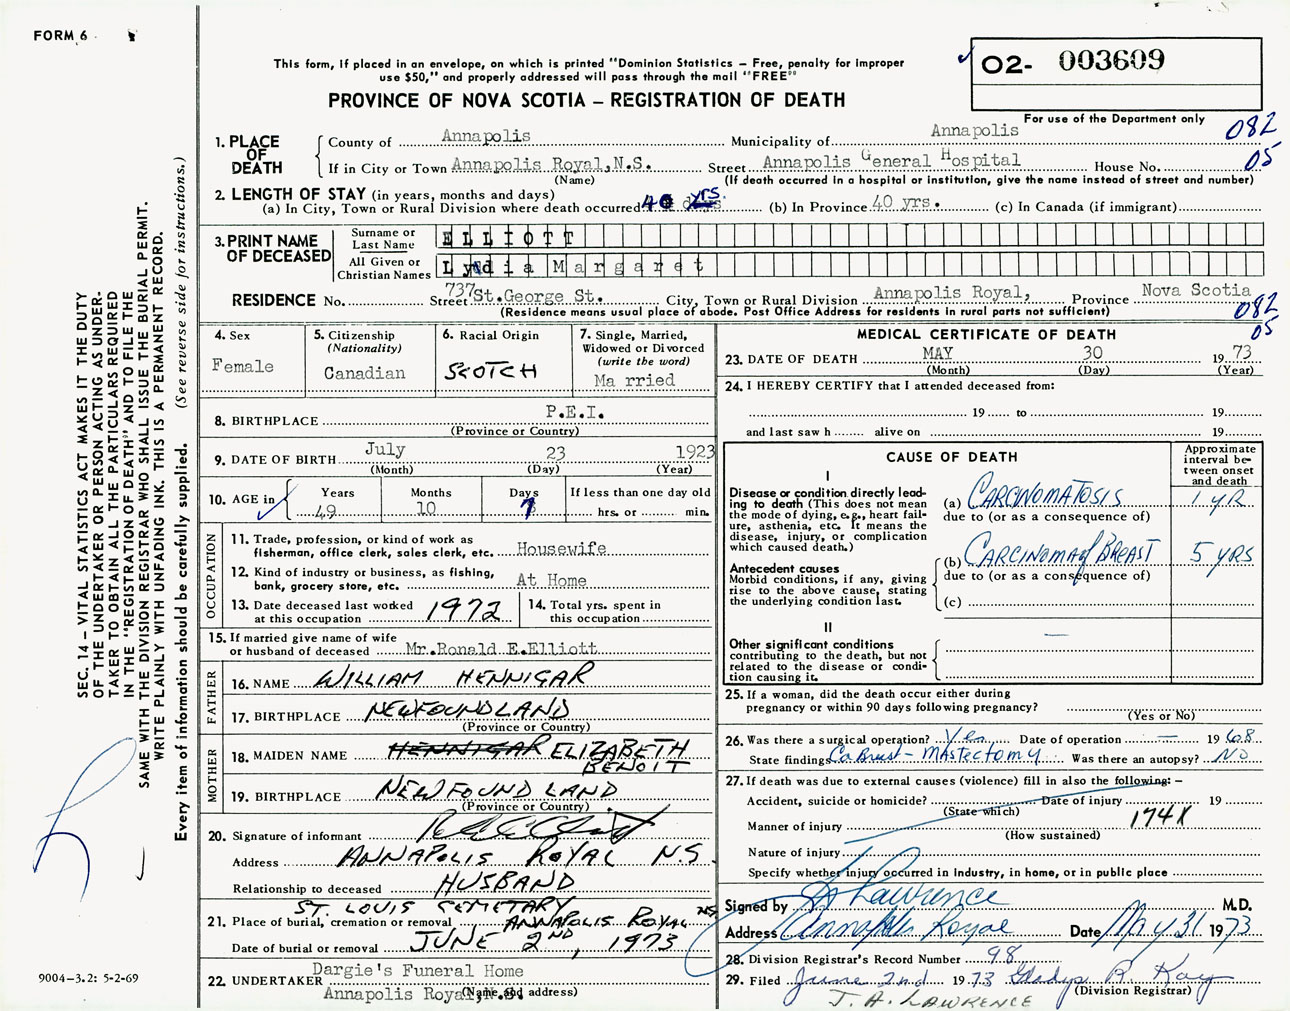 FORM 6
This form, if placed in an envelope, on which is printed "Dominion Statistics – Free, penalty for improper
use $50," and properly addressed will pass through the mail "FREE"
PROVINCE OF NOVA SCOTIA – REGISTRATION OF DEATH
02- 003609
For use of the Department only
082
05
1. PLACE OF DEATH
County of Annapolis Municipality of Annapolis
If in City or Town Annapolis Royal,N.S. Street Annapolis General Hospital House No.
(Name) (If death occurred in a hospital or institution, give the name instead of street and number)
2. LENGTH OF STAY (in years, months and days)
(a) In City, Town or Rural Division where death occurred 40 yrs (b) In Province 40 yrs. (c) In Canada (if immigrant)
3. PRINT NAME OF DECEASED
Surname or Last Name ELLIOTT
All Given or Christian Names Lydia Margaret
RESIDENCE No. Street 737 St.George St. City, Town or Rural Division Annapolis Royal, Province Nova Scotia
(Residence means usual place of abode. Post Office Address for residents in rural parts not sufficient)
082
05
4. Sex
Female
5. Citizenship
(Nationality)
Canadian
6. Racial Origin
SCOTCH
7. Single, Married,
Widowed or Divorced
(write the word)
Ma rried
8. BIRTHPLACE P.E.I.
(Province or Country)
9. DATE OF BIRTH July 23 1923
(Month) (Day) (Year)
10. AGE in Years Months Days If less than one day old
49 10 7 hrs. or min.
OCCUPATION
11. Trade, profession, or kind of work as
fisherman, office clerk, sales clerk, etc. Housewife
12. Kind of industry or business, as fishing,
bank, grocery store, etc. At Home
13. Date deceased last worked
at this occupation 1972
14. Total yrs. spent in
this occupation
15. If married give name of wife
or husband of deceased Mr.Ronald E.Elliott
FATHER
16. NAME WILLIAM HENNIGAR
17. BIRTHPLACE NEWFOUNDLAND
(Province or Country)
MOTHER
18. MAIDEN NAME HENNIGAR ELIZABETH
BENOIT
19. BIRTHPLACE NEWFOUNDLAND
(Province or Country)
20. Signature of informant
Address ANNAPOLIS ROYAL N.S.
Relationship to deceased HUSBAND
ST. LOUIS CEMETARY
21. Place of burial, cremation or removal ANNAPOLIS ROYAL NS.
Date of burial or removal JUNE 2ND, 1973
22. UNDERTAKER Dargie's Funeral Home
Annapolis Royal, N.S.
(Name and address)
MEDICAL CERTIFICATE OF DEATH
23. DATE OF DEATH MAY 30 1973
(Month) (Day) (Year)
24. I HEREBY CERTIFY that I attended deceased from:
19 to 19
and last saw h alive on 19
CAUSE OF DEATH
Approximate
interval be-
tween onset
and death
I
Disease or condition directly lead-
ing to death (This does not
mean the mode of dying, e.g., heart fail-
ure, asthenia, etc. It means the
disease, injury, or complication
which caused death.)
(a) CARCINOMATOSIS 1 YR
due to (or as a consequence of)
(b) CARCINOMA of BREAST 5 YRS
due to (or as a consequence of)
(c)
Antecedent causes
Morbid conditions, if any, giving
rise to the above cause, stating
the underlying condition last.
II
Other significant conditions
contributing to the death, but not
related to the disease or condi-
tion causing it.
—
25. If a woman, did the death occur either during
pregnancy or within 90 days following pregnancy?
(Yes or No)
26. Was there a surgical operation? Yes Date of operation — 1968
State findings Ca Breast - MASTECTOMY Was there an autopsy? NO
27. If death was due to external causes (violence) fill in also the following: –
Accident, suicide or homicide? Date of injury 19
(State which)
174X
Manner of injury
(How sustained)
Nature of injury
Specify whether injury occurred in industry, in home, or in public place
Signed by Lawrence M.D.
Address Annapolis Royal Date May 31 1973
28. Division Registrar's Record Number 98
29. Filed June 2nd 1973 Gladys R. Kay
(Division Registrar)
J. A. LAWRENCE
SEC. 14 – VITAL STATISTICS ACT MAKES IT THE DUTY
OF THE UNDERTAKER OR PERSON ACTING AS UNDER-
TAKER TO OBTAIN ALL THE PARTICULARS REQUIRED
IN THE "REGISTRATION OF DEATH" AND TO FILE THE
SAME WITH THE DIVISION REGISTRAR WHO SHALL ISSUE THE BURIAL PERMIT.
WRITE PLAINLY WITH UNFADING INK. THIS IS A PERMANENT RECORD.
Every item of information should be carefully supplied. (See reverse side for instructions.)
9004-3.2: 5-2-69